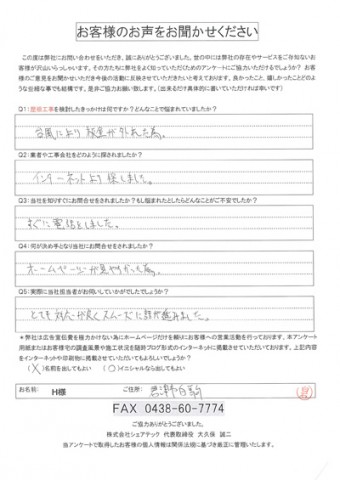 お客様のお声をお聞かせください
この度は弊社にお問い合わせをいただき、誠にありがとうございました。世の中には弊社の存在やサービスをご存知ないお
客様が沢山いらっしゃいます。その方たちに弊社をよく知っていただくためのアンケートにご協力いただけるでしょうか？ お客
様のご意見をお聞かせいただき今後の活動に反映させていただきたいと考えております。良かったこと、嬉しかったことどの
ような些細な事でも結構です。是非ご協力お願い致します。（出来るだけ具体的に書いていただければ幸いです）
Q1:屋根工事を検討したきっかけは何ですか？どんなことで悩まれていましたか？
台風により 板金が外れた為。
Q2:業者や工事会社をどのように探されましたか？
インターネットより探しました。
Q3:当社を知りすぐにお問合せをされましたか？もし悩まれたとしたらどんなことがご不安でしたか？
すぐに電話をしました。
Q4:何が決め手となり当社にお問合せをされましたか？
ホームページが見やすかった為。
Q5:実際に当社担当者がお伺いしていかがでしたでしょうか？
とても対応が良くスムーズに話が進みました。
＊弊社は広告宣伝費を極力かけない為にホームページだけを頼りにお客様への営業活動を行っております。本アンケート
用紙またはお客様宅の調査風景や施工状況を随時ブログ形式のインターネットに掲載させていただいております。上記内容
をインターネットや印刷物に掲載させていただいてもよろしいでしょうか？
（X）名前を出してもよい （○）イニシャルなら出してもよい
お名前: H様 ご住所:
FAX 0438-60-7774
ご協力ありがとうございました。
株式会社シェアテック 代表取締役 大久保 誠二
当アンケートで取得したお客様の個人情報は関係法規に基づき厳正に管理いたします。